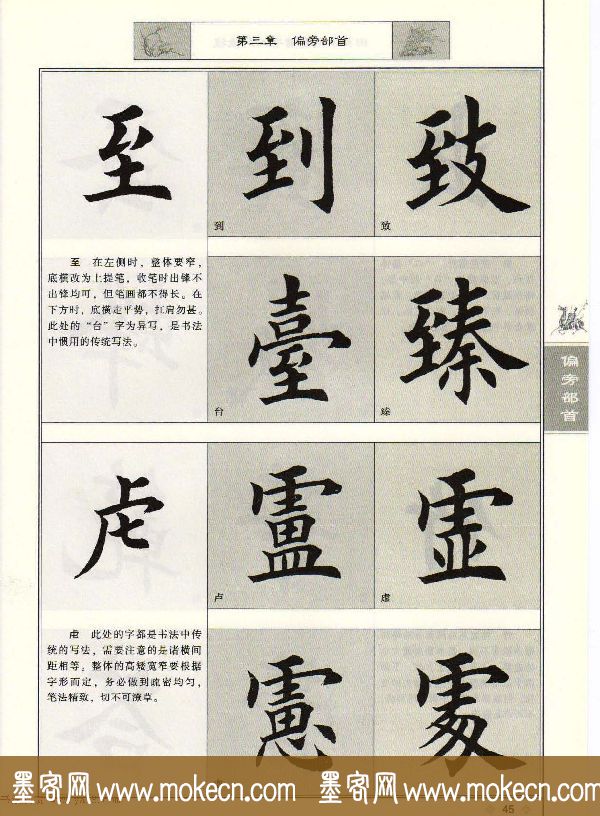 第三章 偏旁部首
至 到 致
到 致
至 在左侧时，整体要窄，
底横改为上提笔，收笔时出锋不
出锋均可，但笔画都不得长。在
下方时，底横走平势，扛肩勿甚。
此处的“台”字为异写，是书法
中惯用的传统写法。
臺 臻
台 臻
偏旁部首
虍 盧 虚
卢 虚
虍 此处的字都是书法中传
统的写法，需要注意的是诸横间
距相等。整体的高矮宽窄要根据
字形而定，务必做到疏密均匀，
笔法精致，切不可潦草。
慮 處
墨客网 www.mokecn.com 墨客网 www.mokecn.com
45